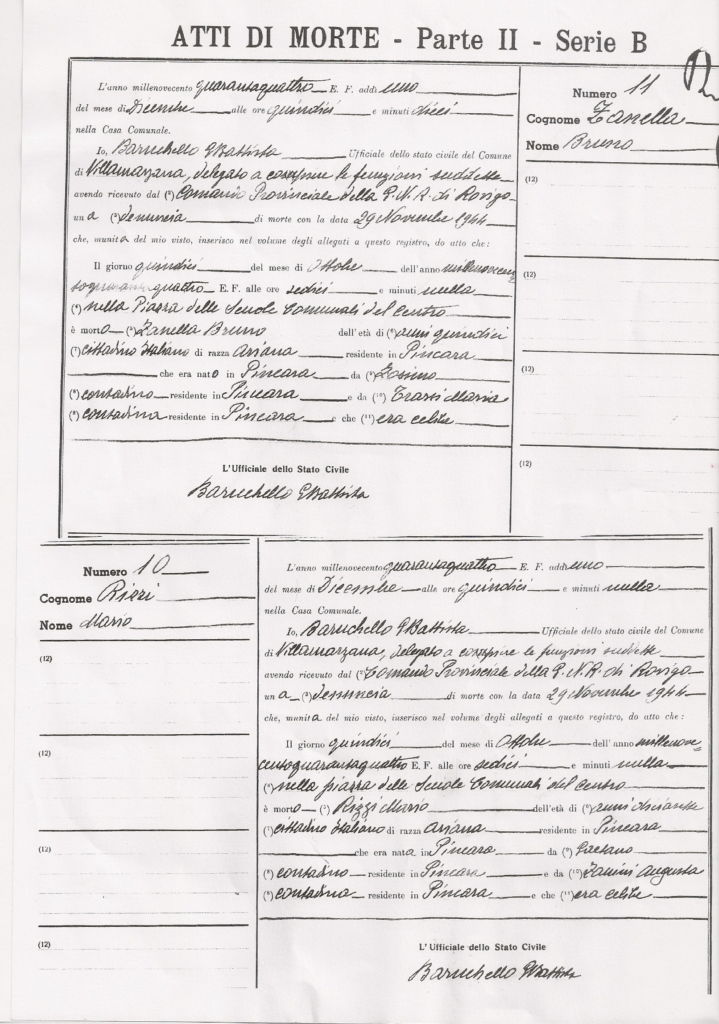 ATTI DI MORTE - Parte II - Serie B
L'anno millenovecento quarantaquattro E. F. addì uno
del mese di Dicembre alle ore quindici e minuti dieci
nella Casa Comunale.
Io, Baruchello GBattista Ufficiale dello stato civile del Comune
di Villamarzana, delegato a compiere le funzioni suddette
avendo ricevuto dal (¹) Comando Provinciale della G.N.R. di Rovigo
una (²) denuncia di morte con la data 29 Novembre 1944
che, munita del mio visto, inserisco nel volume degli allegati a questo registro, do atto che:
Il giorno quindici del mese di Ottobre dell'anno millenovecen
toquarantaquattro E. F. alle ore sedici e minuti nulla
(³) nella Piazza delle Scuole Comunali del Centro
è morto (⁴) Zanella Bruno dell'età di (⁵) anni quindici
(⁶) cittadino Italiano di razza ariana residente in Pincara
che era nato in Pincara da (⁷) Zosimo
(⁸) contadino residente in Pincara e da (¹⁰) Maria
(⁹) contadina residente in Pincara e che (¹¹) era celibe
L'Ufficiale dello Stato Civile
Baruchello GBattista
Numero 11
Cognome Zanella
Nome Bruno
(12)
(12)
(12)
(12)
Numero 10
Cognome Rizzi
Nome Mario
(12)
(12)
(12)
(12)
L'anno millenovecento quarantaquattro E. F. addì uno
del mese di Dicembre alle ore quindici e minuti nulla
nella Casa Comunale.
Io, Baruchello GBattista Ufficiale dello stato civile del Comune
di Villamarzana, delegato a compiere le funzioni suddette
avendo ricevuto dal (¹) Comando Provinciale della G.N.R. di Rovigo
una (²) denuncia di morte con la data 29 Novembre 1944
che, munita del mio visto, inserisco nel volume degli allegati a questo registro, do atto che:
Il giorno quindici del mese di Ottobre dell'anno millenove=
centoquarantaquattro E. F. alle ore sedici e minuti nulla
(³) nella piazza delle Scuole Comunali del Centro
è morto (⁴) Rizzi Mario dell'età di (⁵) anni
(⁶) cittadino Italiano di razza ariana residente in Pincara
che era nato in Pincara da (⁷) Gaetano
(⁸) contadino residente in Pincara e da (¹⁰) Zanini Augusta
(⁹) contadina residente in Pincara e che (¹¹) era celibe
L'Ufficiale dello Stato Civile
Baruchello GBattista